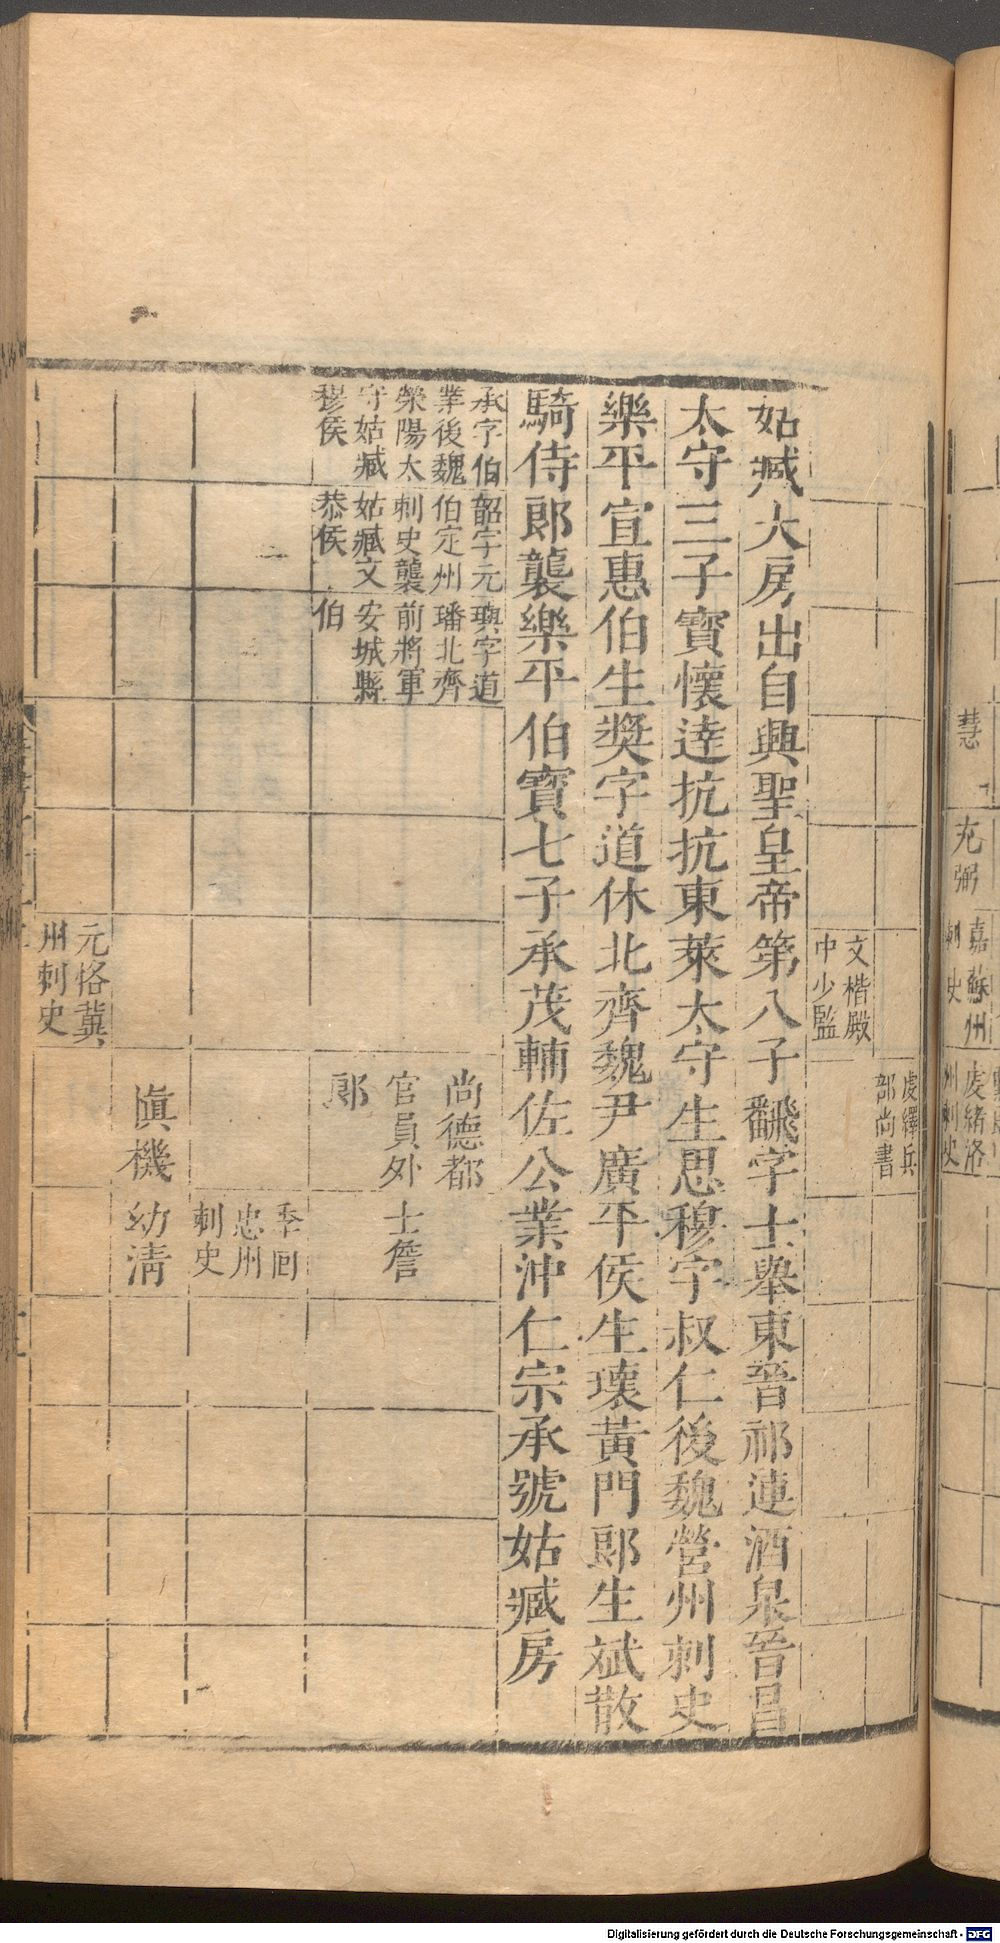 慧
充
弼
嘉蘇州
刺史
虔緒洛
州刺史
虔繹兵
部尚書
文楷殿
中少監
姑臧大房出自興聖皇帝第八子飜字士舉東晉祁連酒泉晉昌
太守三子寶懷逵抗抗東萊太守生思穆字叔仁後魏營州刺史
樂平宣惠伯生奬字道休北齊魏尹廣平侯生瓌黃門郎生斌散
騎侍郎襲樂平伯寶七子承茂輔佐公業沖仁宗承號姑臧房
承字伯
業後魏
滎陽太
守姑臧
穆侯
韶字元
伯定州
刺史襲
姑臧文
恭侯
璵字道
璠北齊
前將軍
安城縣
伯
尚德都
官員外
郎
士詹
季回
忠州
刺史
慎機
幼清
元恪冀
州刺史
Digitalisierung gefördert durch die Deutsche Forschungsgemeinschaft - DFG